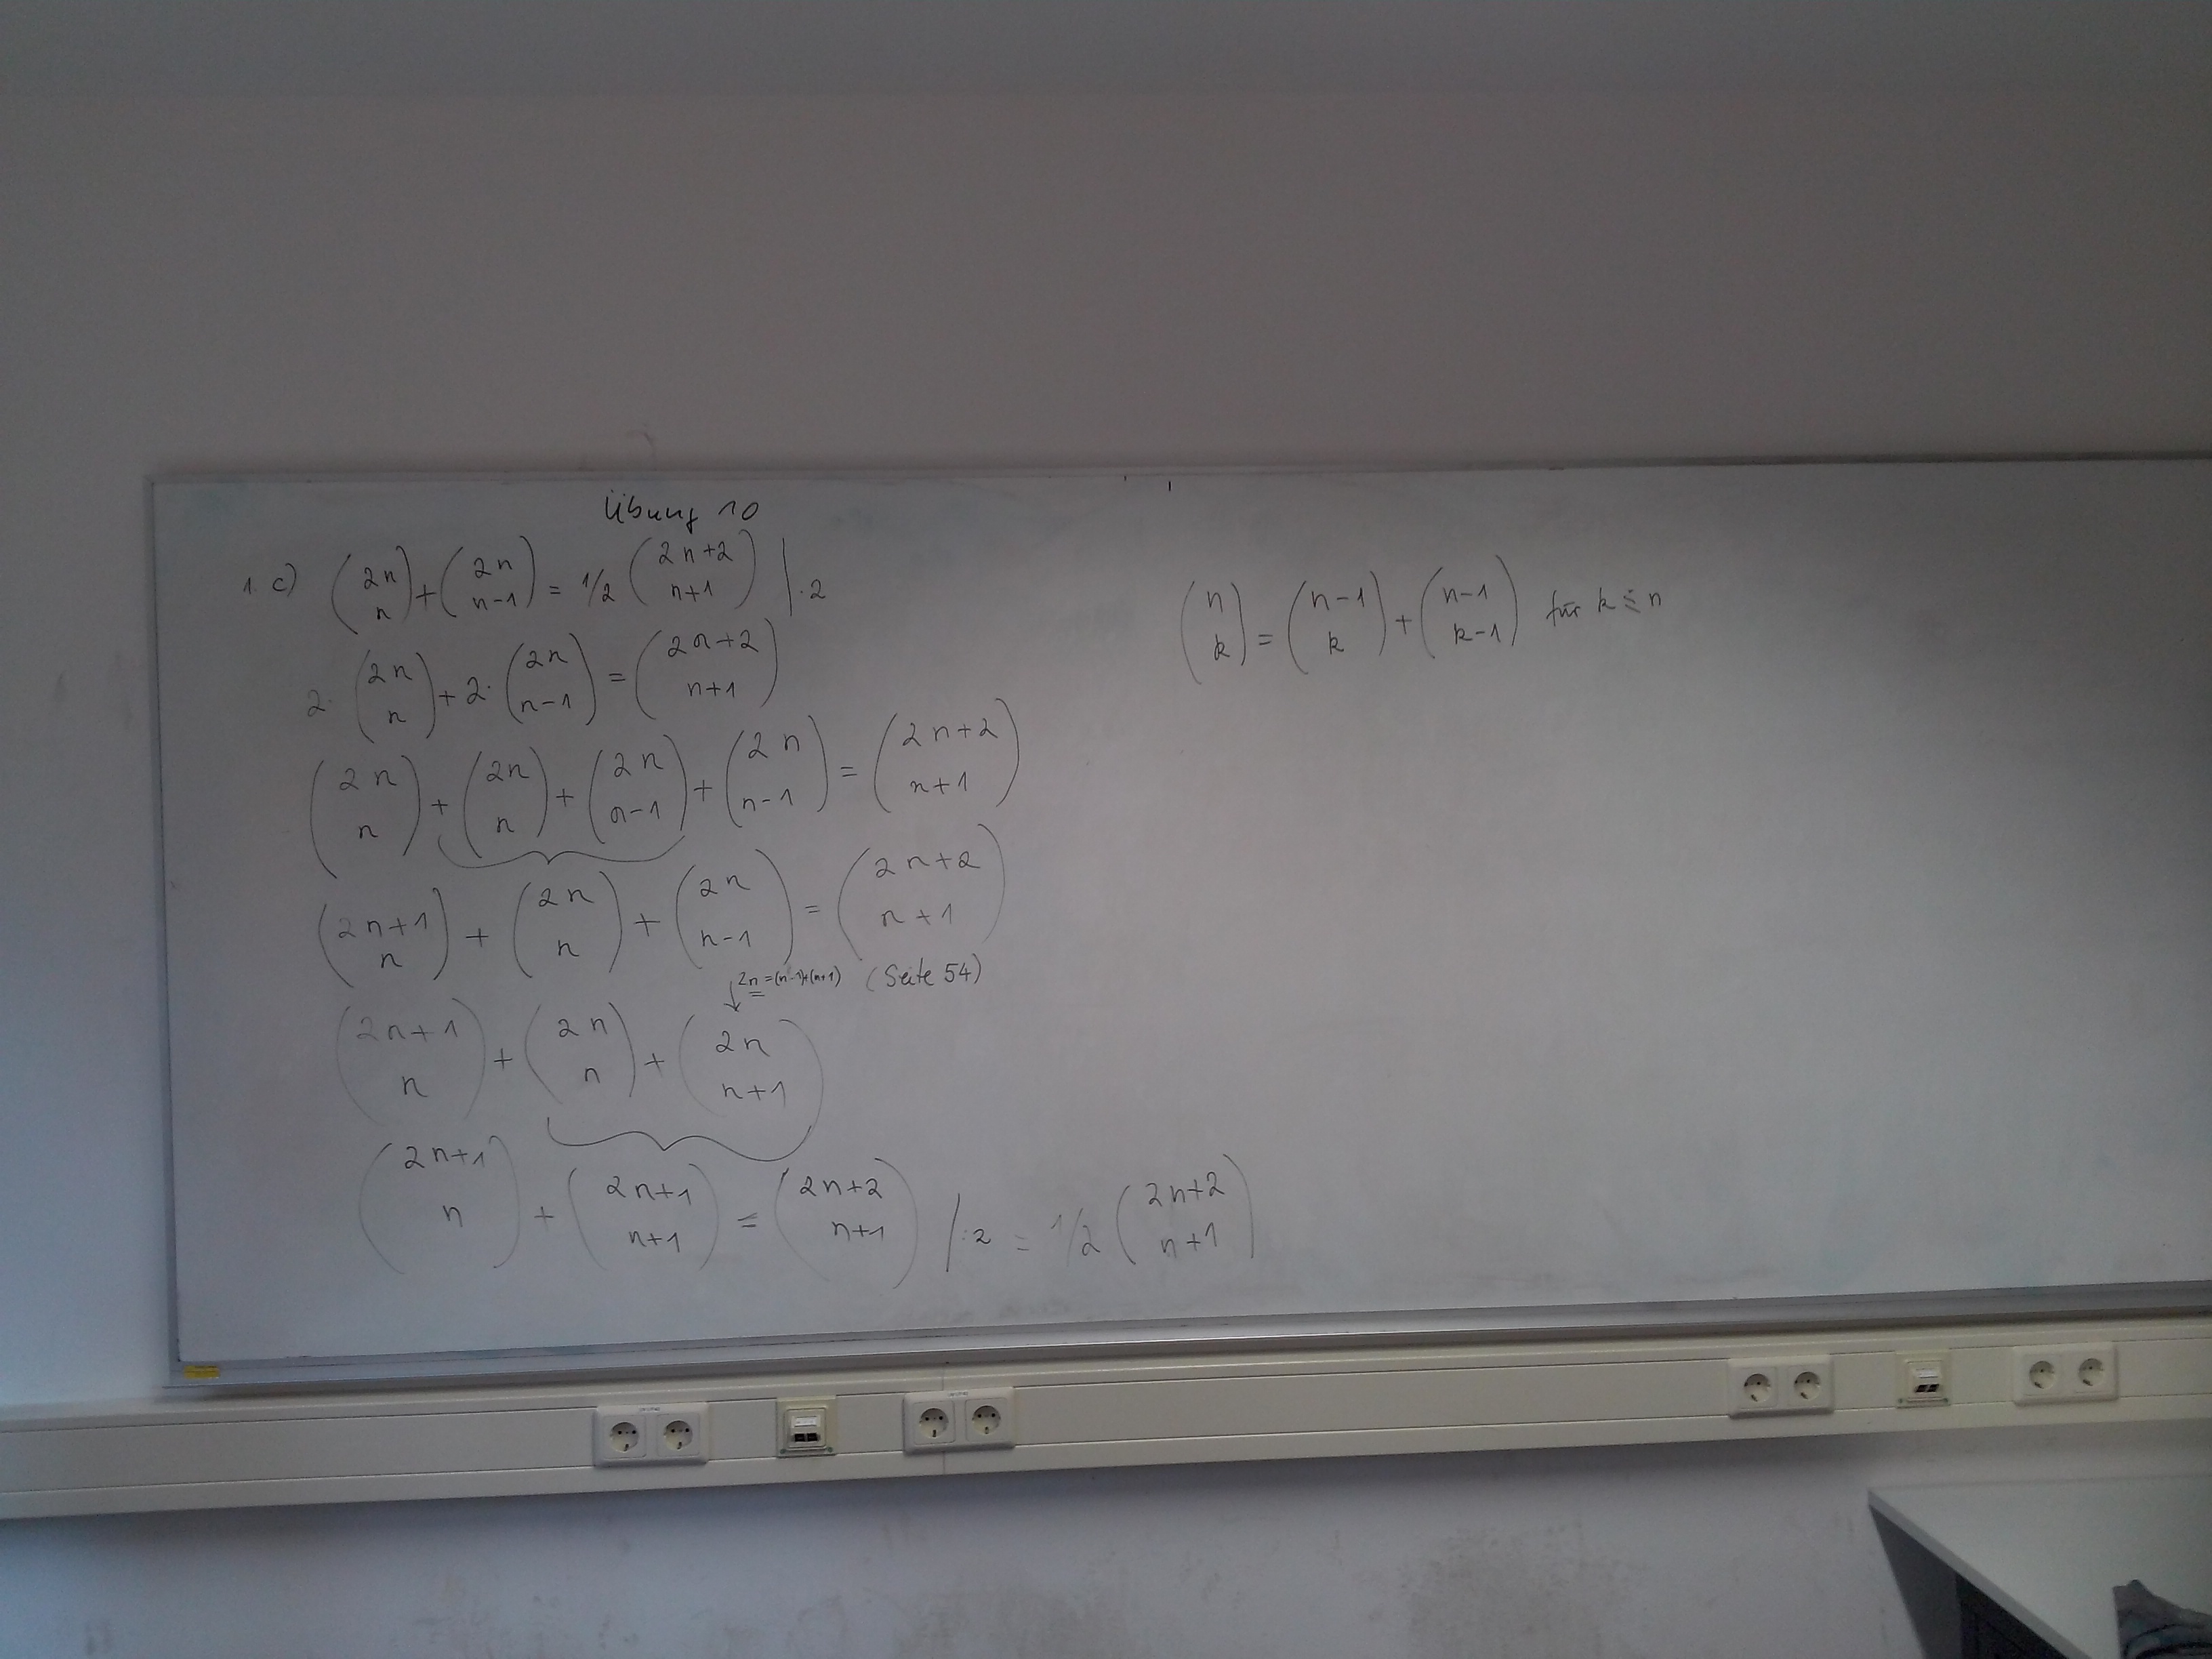 Übung 10
1. c) (2n n) + (2n n-1) = 1/2 (2n+2 n+1) | ·2
2· (2n n) + 2· (2n n-1) = (2n+2 n+1)
(2n n) + (2n n) + (2n n-1) + (2n n-1) = (2n+2 n+1)
(2n+1 n) + (2n n) + (2n n-1) = (2n+2 n+1)
2n = (n-1)+(n+1) (Seite 54)
(2n+1 n) + (2n n) + (2n n+1)
(2n+1 n) + (2n+1 n+1) = (2n+2 n+1) | :2 = 1/2 (2n+2 n+1)
(n k) = (n-1 k) + (n-1 k-1) für k ≤ n